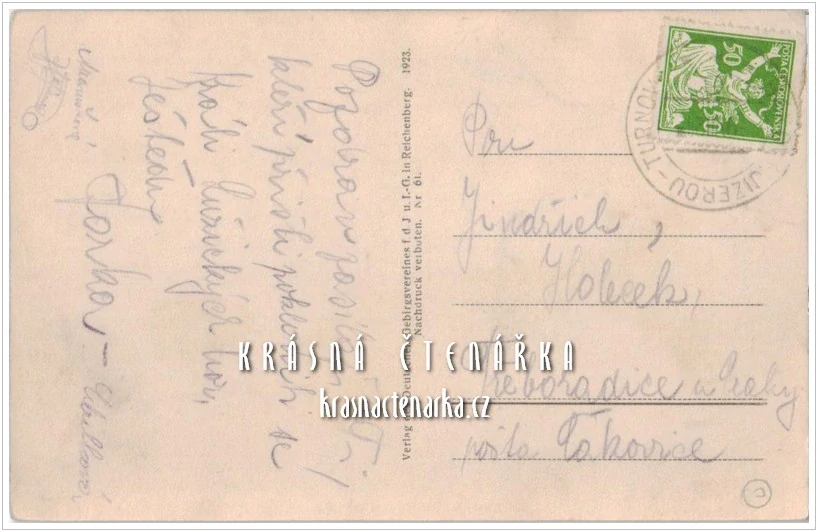 Pozdrav zasílají Ti,
kteří přišli poklonit se
králi Lužických hor,
Ještědu
Jarka
Verlag des Deutschen Gebirgsvereines f. d. J. u. I.-G. in Reichenberg. 1923.
Nachdruck verboten. Nr 61.
POŠTA ČESKOSLOVENSKÁ
50 50
TURNOV
JIZEROU
Pan
Jindřich,
Holeček,
Třeboradice u Prahy
pošta Čakovice
KRÁSNÁ ČTENÁŘKA
krasnactenarka.cz